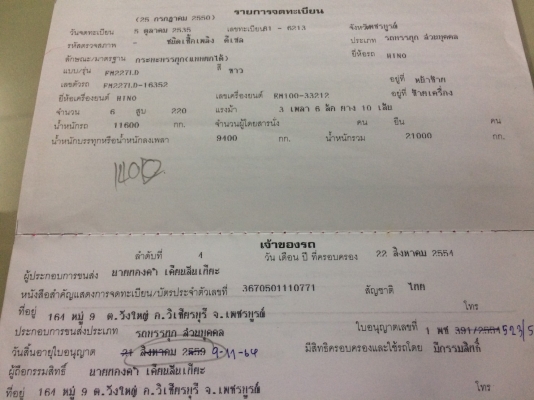 รายการจดทะเบียน
(25 กรกฎาคม 2550)
วันจดทะเบียน 5 ตุลาคม 2535 เลขทะเบียน 81 - 6213 จังหวัด เพชรบูรณ์
รหัสตรวจสภาพ - ชนิดเชื้อเพลิง ดีเซล ประเภท รถบรรทุก ส่วนบุคคล
ลักษณะ/มาตรฐาน กระบะบรรทุก(ยกเทได้) ยี่ห้อรถ HINO
แบบ/รุ่น FM227LD สี ขาว
เลขตัวรถ FM227LD-16352 อยู่ที่ หน้าซ้าย
ยี่ห้อเครื่องยนต์ HINO เลขเครื่องยนต์ RM100-33212 อยู่ที่ ซ้ายเครื่อง
จำนวน 6 สูบ 220 แรงม้า 3 เพลา 6 ล้อ ยาง 10 เส้น
น้ำหนักรถ 11600 กก. จำนวนผู้โดยสารนั่ง คน ยืน คน
น้ำหนักบรรทุกหรือน้ำหนักลงเพลา 9400 กก. น้ำหนักรวม 21000 กก.
เจ้าของรถ
ลำดับที่ 4 วัน เดือน ปี ที่ครอบครอง 22 สิงหาคม 2554
ผู้ประกอบการขนส่ง นายทองคำ
หนังสือสำคัญแสดงการจดทะเบียน/บัตรประจำตัวเลขที่ 3670501110771 สัญชาติ ไทย
ที่อยู่ 164 หมู่ 9 ต.วังใหญ่ อ.วิเชียรบุรี จ.เพชรบูรณ์ โทร
ประกอบการขนส่งประเภท รถบรรทุก ส่วนบุคคล ใบอนุญาตเลขที่ 1 พช 391/2554 523/5
วันสิ้นอายุใบอนุญาต 21 สิงหาคม 2559 9-11-64 มีสิทธิครอบครองและใช้รถโดย มีกรรมสิทธิ์
ผู้ถือกรรมสิทธิ์ นายทองคำ
ที่อยู่ 164 หมู่ 9 ต.วังใหญ่ อ.วิเชียรบุรี จ.เพชรบูรณ์ โทร